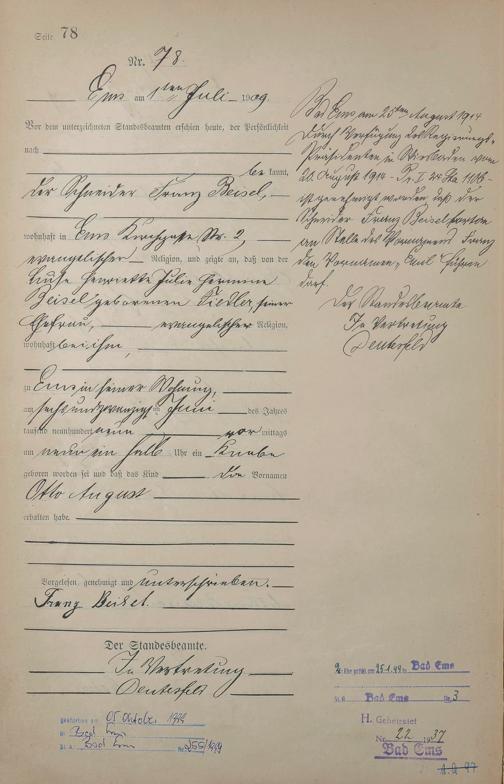 Seite 78
Nr. 78.
Ems am 1ten Juli 1909.
Vor dem unterzeichneten Standesbeamten erschien heute, der Persönlichkeit
nach
be kannt,
der Schneider Franz Beisel,
wohnhaft in Ems Kirchgasse Nr. 2,
evangelischer Religion, und zeigte an, daß von der
Luise Henriette Julie Hermine
Beisel geborenen Fiedler, seiner
Ehefrau, evangelischer Religion,
wohnhaft bei ihm,
zu Ems in seiner Wohnung,
am sechsundzwanzigsten Juni des Jahres
tausend neunhundert neun vor mittags
um neun ein halb Uhr ein Knabe
geboren worden sei und daß das Kind die Vornamen
Otto August
erhalten habe.
Vorgelesen, genehmigt und unterschrieben.
Franz Beisel.
Der Standesbeamte.
In Vertretung
Deutesfeld
Bad Ems, am 25ten August 1914
Durch Verfügung des Regierungs-
Präsidenten in Wiesbaden vom
21 August 1914
ist genehmigt worden, daß der
Schneider Franz Beisel fortan
an Stelle des Vornamens Franz
den Vornamen "Emil" führen
darf.
Der Standesbeamte
In Vertretung
Deutesfeld
gestorben am 05. Oktober
in Bad Ems
St. A. Bad Ems Nr.
25.1.49 in Bad Ems
St. A. Bad Ems Nr. 3
H. Geheiratet
Nr. 22 1937
Bad Ems